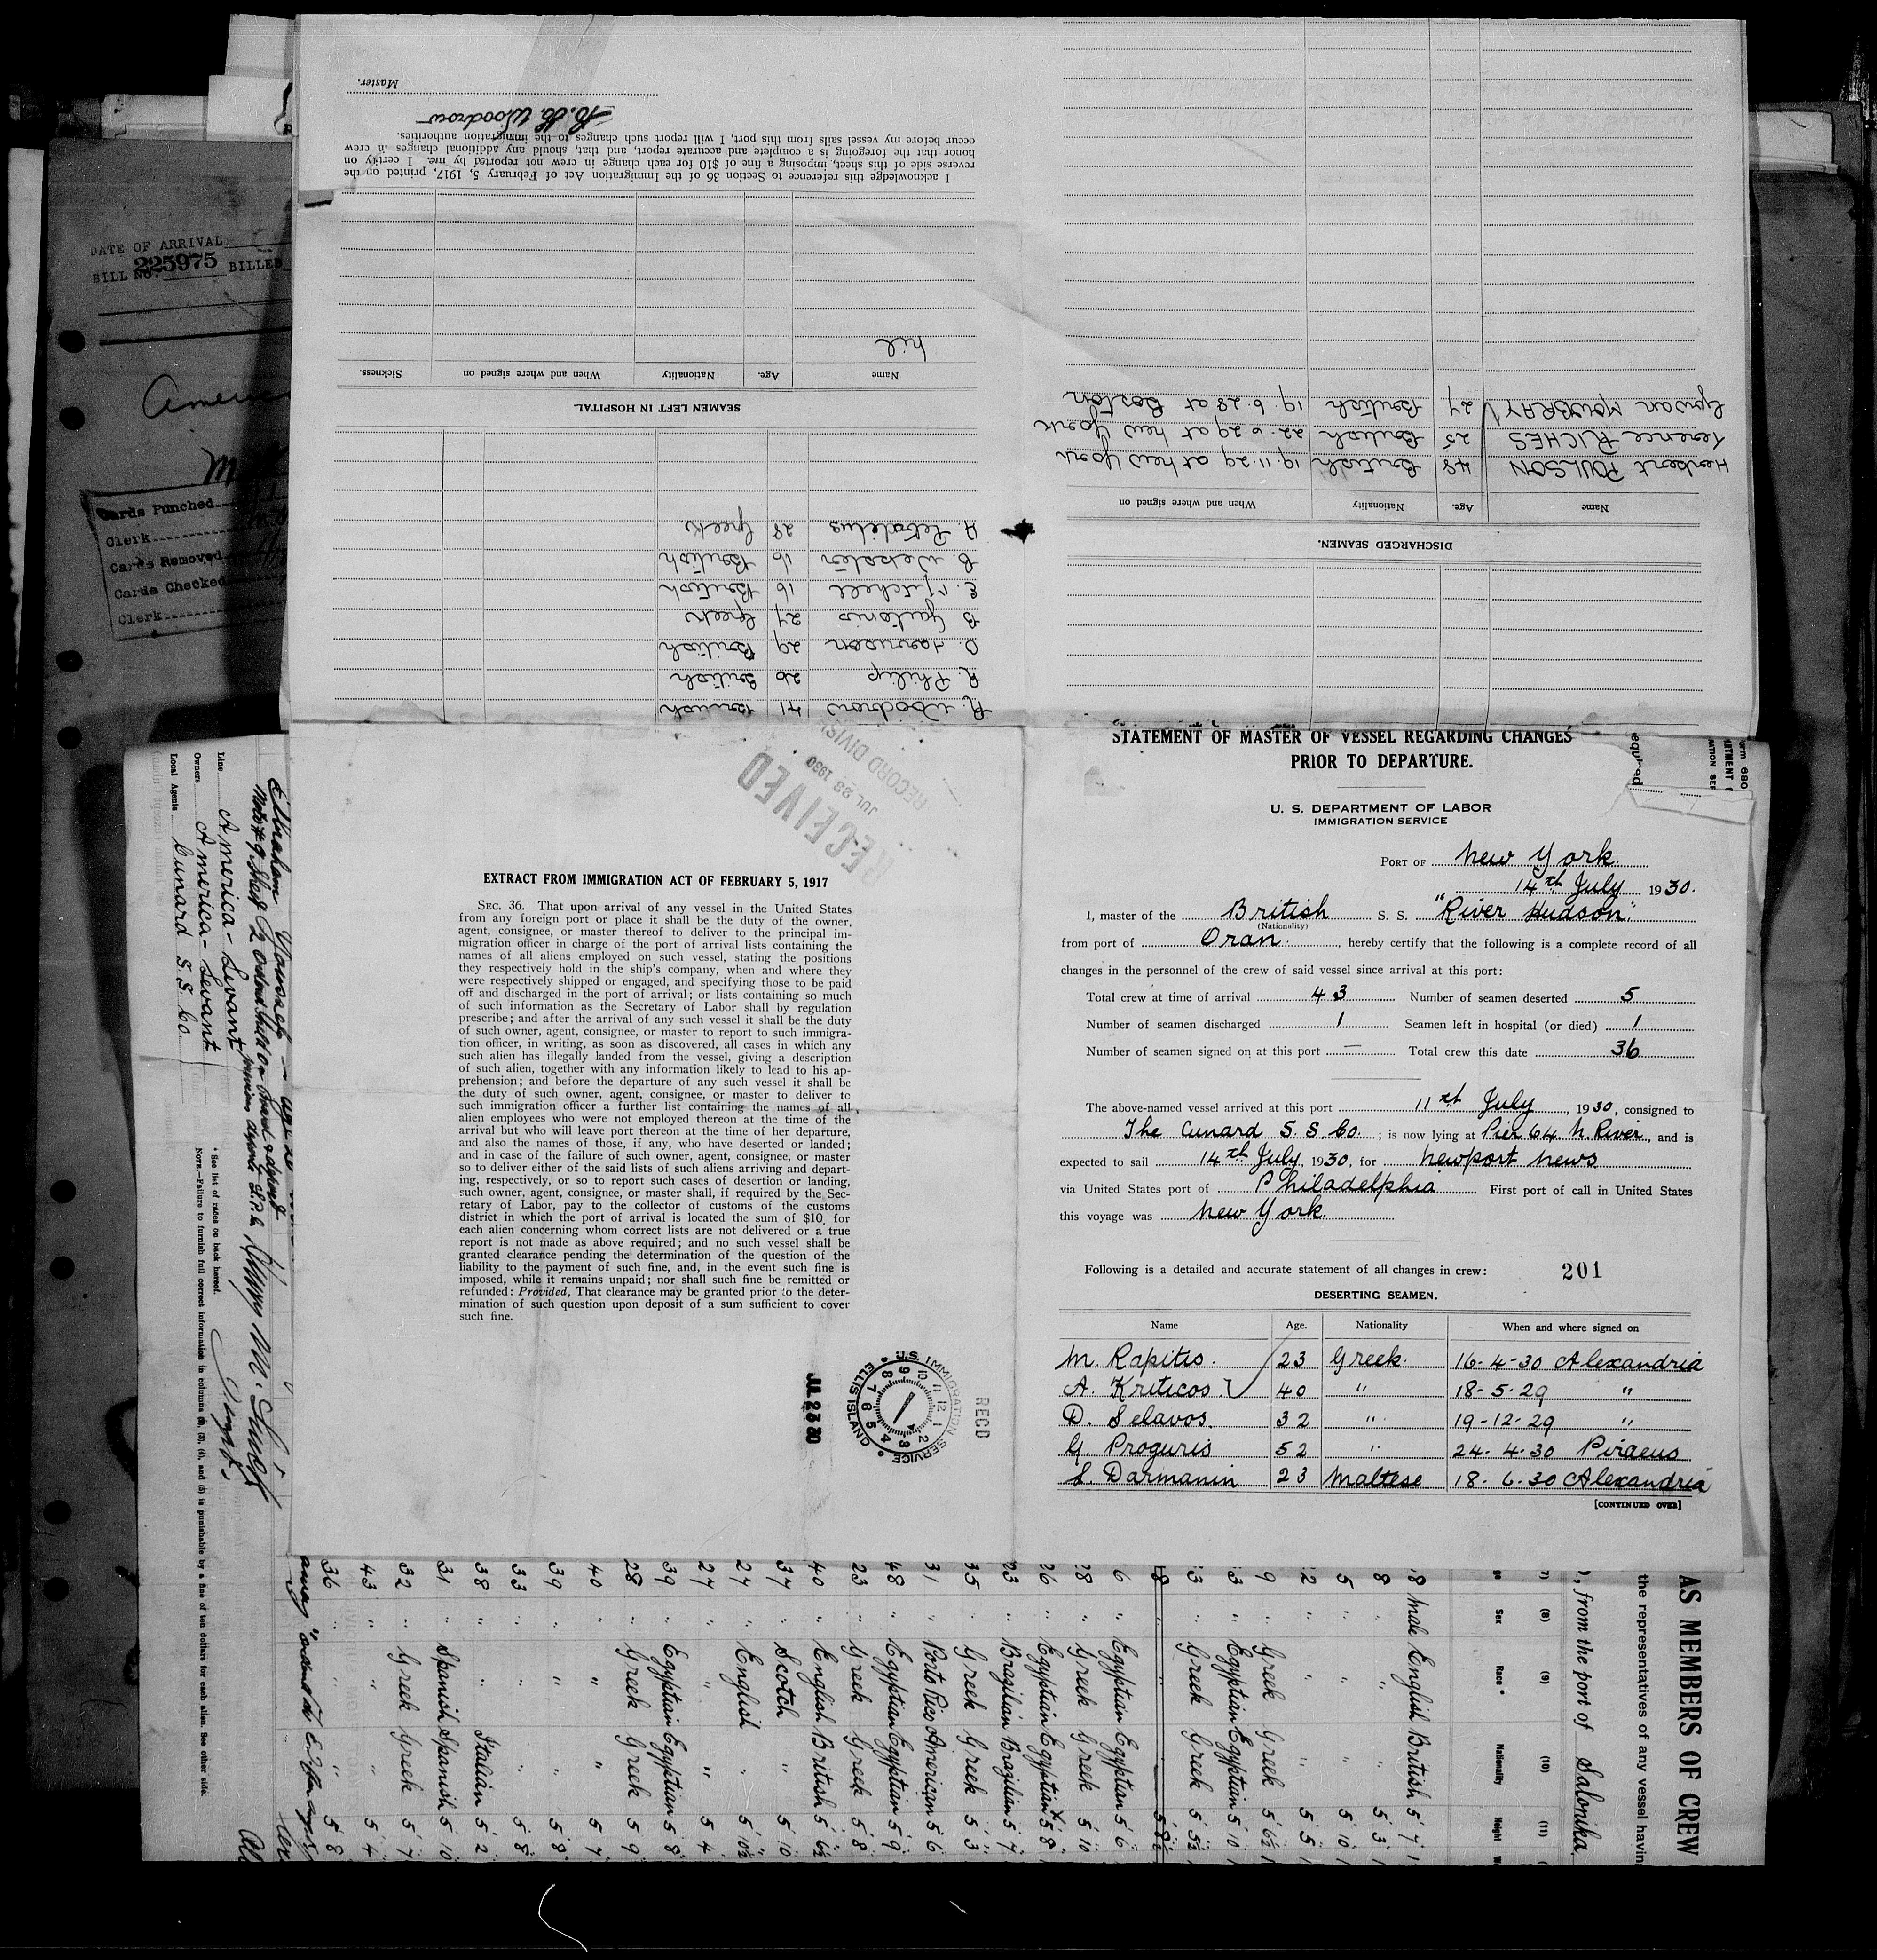 STATEMENT OF MASTER OF VESSEL REGARDING CHANGES
PRIOR TO DEPARTURE.
U. S. DEPARTMENT OF LABOR
IMMIGRATION SERVICE
PORT OF New York.
14th July 1930.
I, master of the British S. S. "River Hudson"
(Nationality)
from port of Oran, hereby certify that the following is a complete record of all
changes in the personnel of the crew of said vessel since arrival at this port:
Total crew at time of arrival 43 Number of seamen deserted 5
Number of seamen discharged 1 Seamen left in hospital (or died) 1
Number of seamen signed on at this port — Total crew this date 36
The above-named vessel arrived at this port 11th July, 1930, consigned to
The Cunard S. S. Co.; is now lying at Pier 64 N. River, and is
expected to sail 14th July, 1930, for Newport News
via United States port of Philadelphia First port of call in United States
this voyage was New York
Following is a detailed and accurate statement of all changes in crew: 201
DESERTING SEAMEN.
Name Age. Nationality When and where signed on
M. Rapitis. 23 Greek. 16-4-30 Alexandria
A. Kriticos 40 " 18-5-29 "
D. Selavos. 32 " 19-12-29 "
G. Proguris 52 " 24-4-30 Piraeus
S. Darmanin 23 Maltese 18-6-30 Alexandria
[CONTINUED OVER]
RECEIVED
JUL 23 1930
RECORD DIVISI
EXTRACT FROM IMMIGRATION ACT OF FEBRUARY 5, 1917
SEC. 36. That upon arrival of any vessel in the United States
from any foreign port or place it shall be the duty of the owner,
agent, consignee, or master thereof to deliver to the principal im-
migration officer in charge of the port of arrival lists containing the
names of all aliens employed on such vessel, stating the positions
they respectively hold in the ship's company, when and where they
were respectively shipped or engaged, and specifying those to be paid
off and discharged in the port of arrival; or lists containing so much
of such information as the Secretary of Labor shall by regulation
prescribe; and after the arrival of any such vessel it shall be the duty
of such owner, agent, consignee, or master to report to such immigra-
tion officer, in writing, as soon as discovered, all cases in which any
such alien has illegally landed from the vessel, giving a description
of such alien, together with any information likely to lead to his ap-
prehension; and before the departure of any such vessel it shall be
the duty of such owner, agent, consignee, or master to deliver to
such immigration officer a further list containing the names of all
alien employees who were not employed thereon at the time of the
arrival but who will leave port thereon at the time of her departure,
and also the names of those, if any, who have deserted or landed;
and in case of the failure of such owner, agent, consignee, or master
so to deliver either of the said lists of such aliens arriving and depart-
ing, respectively, or so to report such cases of desertion or landing,
such owner, agent, consignee, or master shall, if required by the Sec-
retary of Labor, pay to the collector of customs of the customs
district in which the port of arrival is located the sum of $10 for
each alien concerning whom correct lists are not delivered or a true
report is not made as above required; and no such vessel shall be
granted clearance pending the determination of the question of the
liability to the payment of such fine, and, in the event such fine is
imposed, while it remains unpaid; nor shall such fine be remitted or
refunded: Provided, That clearance may be granted prior to the deter-
mination of such question upon deposit of a sum sufficient to cover
such fine.
JUL 23 30
U.S. IMMIGRATION SERVICE
ELLIS ISLAND
RECD
R. Woodrow 41 British
R. Philip 26 British
D. Harrison 29 British
B. 24 Greek
C. Mitchell 16 British
B. Webster 16 British
A. 28 Greek
SEAMEN LEFT IN HOSPITAL.
Name Age. Nationality When and where signed on Sickness.
nil
I acknowledge this reference to Section 36 of the Immigration Act of February 5, 1917, printed on the
reverse side of this sheet, imposing a fine of $10 for each change in crew not reported by me. I certify on
honor that the foregoing is a complete and accurate report, and that, should any additional changes in crew
occur before my vessel sails from this port, I will report such changes to the immigration authorities.
Woodrow
Master.
DISCHARGED SEAMEN.
Name Age. Nationality When and where signed on
Herbert POULSON 48 British 19.11.29 at New York
Terence RICHES 25 British 22.6.29 at New York
Gowan MOWBRAY 24 British 19.6.28 at Boston
DATE OF ARRIVAL
BILL NO. 225975 BILLED
Americ
Cards Punched
Clerk
Cards Removed
Cards Checked
Clerk
Line America-Levant
Owners America-Levant
Local Agents Cunard S.S. Co.
* See list of races on back hereof.
NOTE.—Failure to furnish full correct information in columns (2), (3), (4), and (5) is punishable by a fine of ten dollars for each alien. See other side.
AS MEMBERS OF CREW
the representatives of any vessel having
, from the port of Salonika,
(8) (9) (10) (11)
Sex Race * Nationality Height
8 male English British 5 7
8 " " " 5 3
5 " " " 5 10
2 " " " 5 5
9 " Greek Greek 5 6½
3 " Egyptian Egyptian 5 0
3 " Greek Greek 5 5½
6 " Egyptian Egyptian 5 6
28 " Greek Greek 5 10
26 " Egyptian Egyptian 5 8
23 " Brazilian Brazilian 5 7
35 " Greek Greek 5 3
31 Porto Rico American 5 6
48 " Egyptian Egyptian 5 9
23 " Greek Greek 5 8
40 " English British 5 6½
37 " Scotch " 5 10
27 " English " 5 10½
27 " " " 5 4
39 " Egyptian Egyptian 5 8
28 " Greek Greek 5 9
40 " " " 5 7
39 " " " 5 8
33 " " " 5 8
38 " " Italian 5 2
31 " Spanish Spanish 5 10
32 " Greek Greek 5 7
43 " " " 5 4
36 " " " 5 8